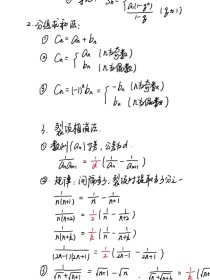 Sn = a₁(1-qⁿ)/(1-q) (q≠1)
2. 分组求和法:
① Cn = an + bn
② Cn = { an (n为奇数)
bn (n为偶数)
③ Cn = (-1)ⁿbn = { -bn (n为奇数)
bn (n为偶数)
3. 裂项相消法:
① 数列{an}等差, 公差为d.
1/(anan+1) = 1/d (1/an - 1/an+1)
② 规律: 间隔多少, 裂项时提取多少分之一
1/(n(n+1)) = 1/n - 1/(n+1)
1/(n(n+2)) = 1/2 (1/n - 1/(n+2))
1/(n(n+k)) = 1/k (1/n - 1/(n+k))
1/((2n-1)(2n+1)) = 1/2 (1/(2n-1) - 1/(2n+1))
③ 1/(√n+√(n+1)) = √(n+1) - √n